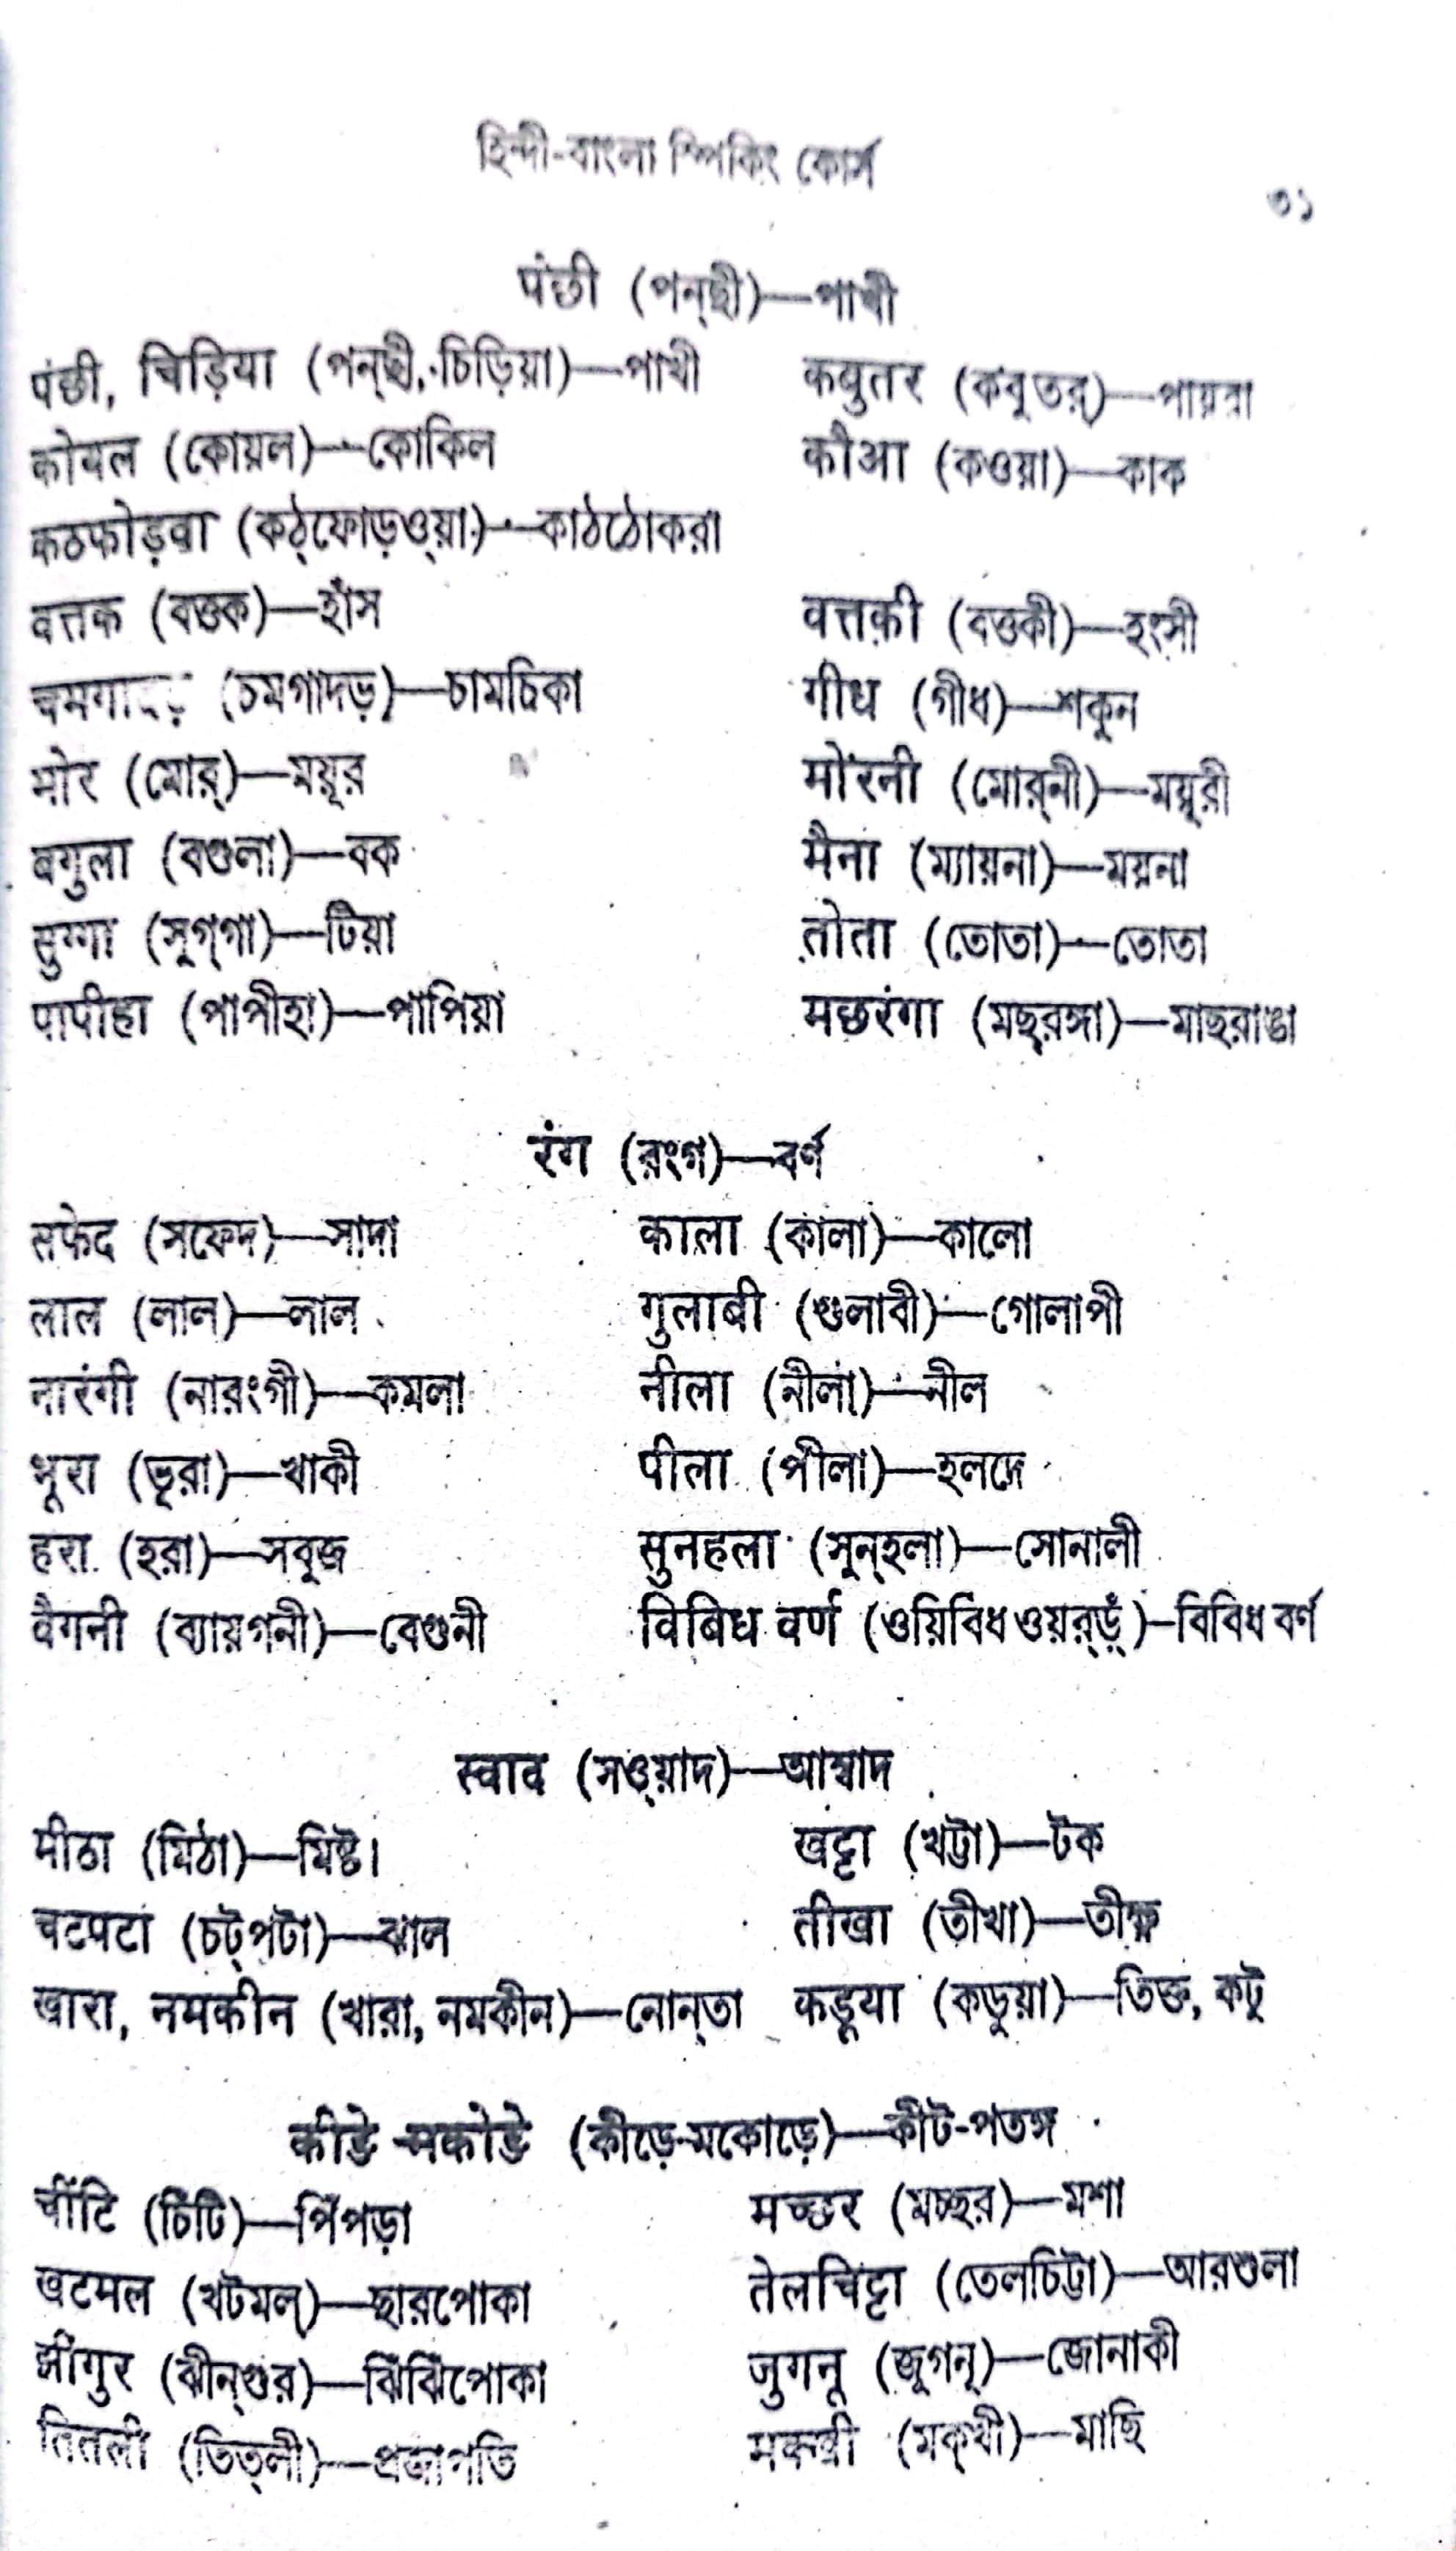 হিন্দী-বাংলা স্পিকিং কোর্স
৩১
पंछी (পন্‌ছী)—পাখী
पंछी, चिड़िया (পন্‌ছী, চিড়িয়া)—পাখী कबुतर (কবুতর্)—পায়রা
कोयल (কোয়ল)—কোকিল कौआ (কওয়া)—কাক
कठफोड़वा (কঠ্‌ফোড়ও্‌য়া)—কাঠঠোকরা
वत्तक (বত্তক)—হাঁস वत्तक़ी (বত্তকী)—হংসী
(চমগাদড়)—চামচিকা गीध (গীধ)—শকুন
मोर (মোর্)—ময়ূর मोरनी (মোর্‌নী)—ময়ূরী
बगुला (বগুলা)—বক मैना (ম্যায়না)—ময়না
सुग्गा (সুগ্‌গা)—টিয়া तोता (তোতা)—তোতা
पापीहा (পাপীহা)—পাপিয়া मछरंगा (মছ্‌রঙ্গা)—মাছরাঙা
रंग (রংগ)—বর্ণ
सफेद (সফেদ)—সাদা काला (কালা)—কালো
लाल (লাল)—লাল गुलाबी (গুলাবী)—গোলাপী
नारंगी (নারংগী)—কমলা नीला (নীলা)—নীল
भूरा (ভূরা)—খাকী पीला (পীলা)—হলদে
हरा (হরা)—সবুজ सुनहला (সুন্‌হলা)—সোনালী
वैगनी (ব্যায়গনী)—বেগুনী विबिध वर्ण (ওয়িবিধ ওয়র্‌ড়ঁ)-বিবিধ বর্ণ
स्वाद (সও্‌য়াদ)—আস্বাদ
मीठा (মিঠা)—মিষ্ট। खट्टा (খট্টা)—টক
चटपटा (চট্‌পটা)—ঝাল तीखा (তীখা)—তীক্ষ্ণ
खारा, नमकीन (খারা, নমকীন)—নোন্‌তা कडूया (কডুয়া)—তিক্ত, কটু
कीडे-मकोडे (কীড়ে-মকোড়ে)—কীট-পতঙ্গ
चींटि (চিঁটি)—পিঁপড়া मच्छर (মচ্ছর)—মশা
खटमल (খটমল্)—ছারপোকা तेलचिट्टा (তেলচিট্টা)—আরশুলা
झींगुर (ঝীন্‌গুর)—ঝিঁঝিঁপোকা जुगनू (জুগনূ)—জোনাকী
तितली (তিত্‌লী)—প্রজাপতি मक्खी (মক্‌খী)—মাছি